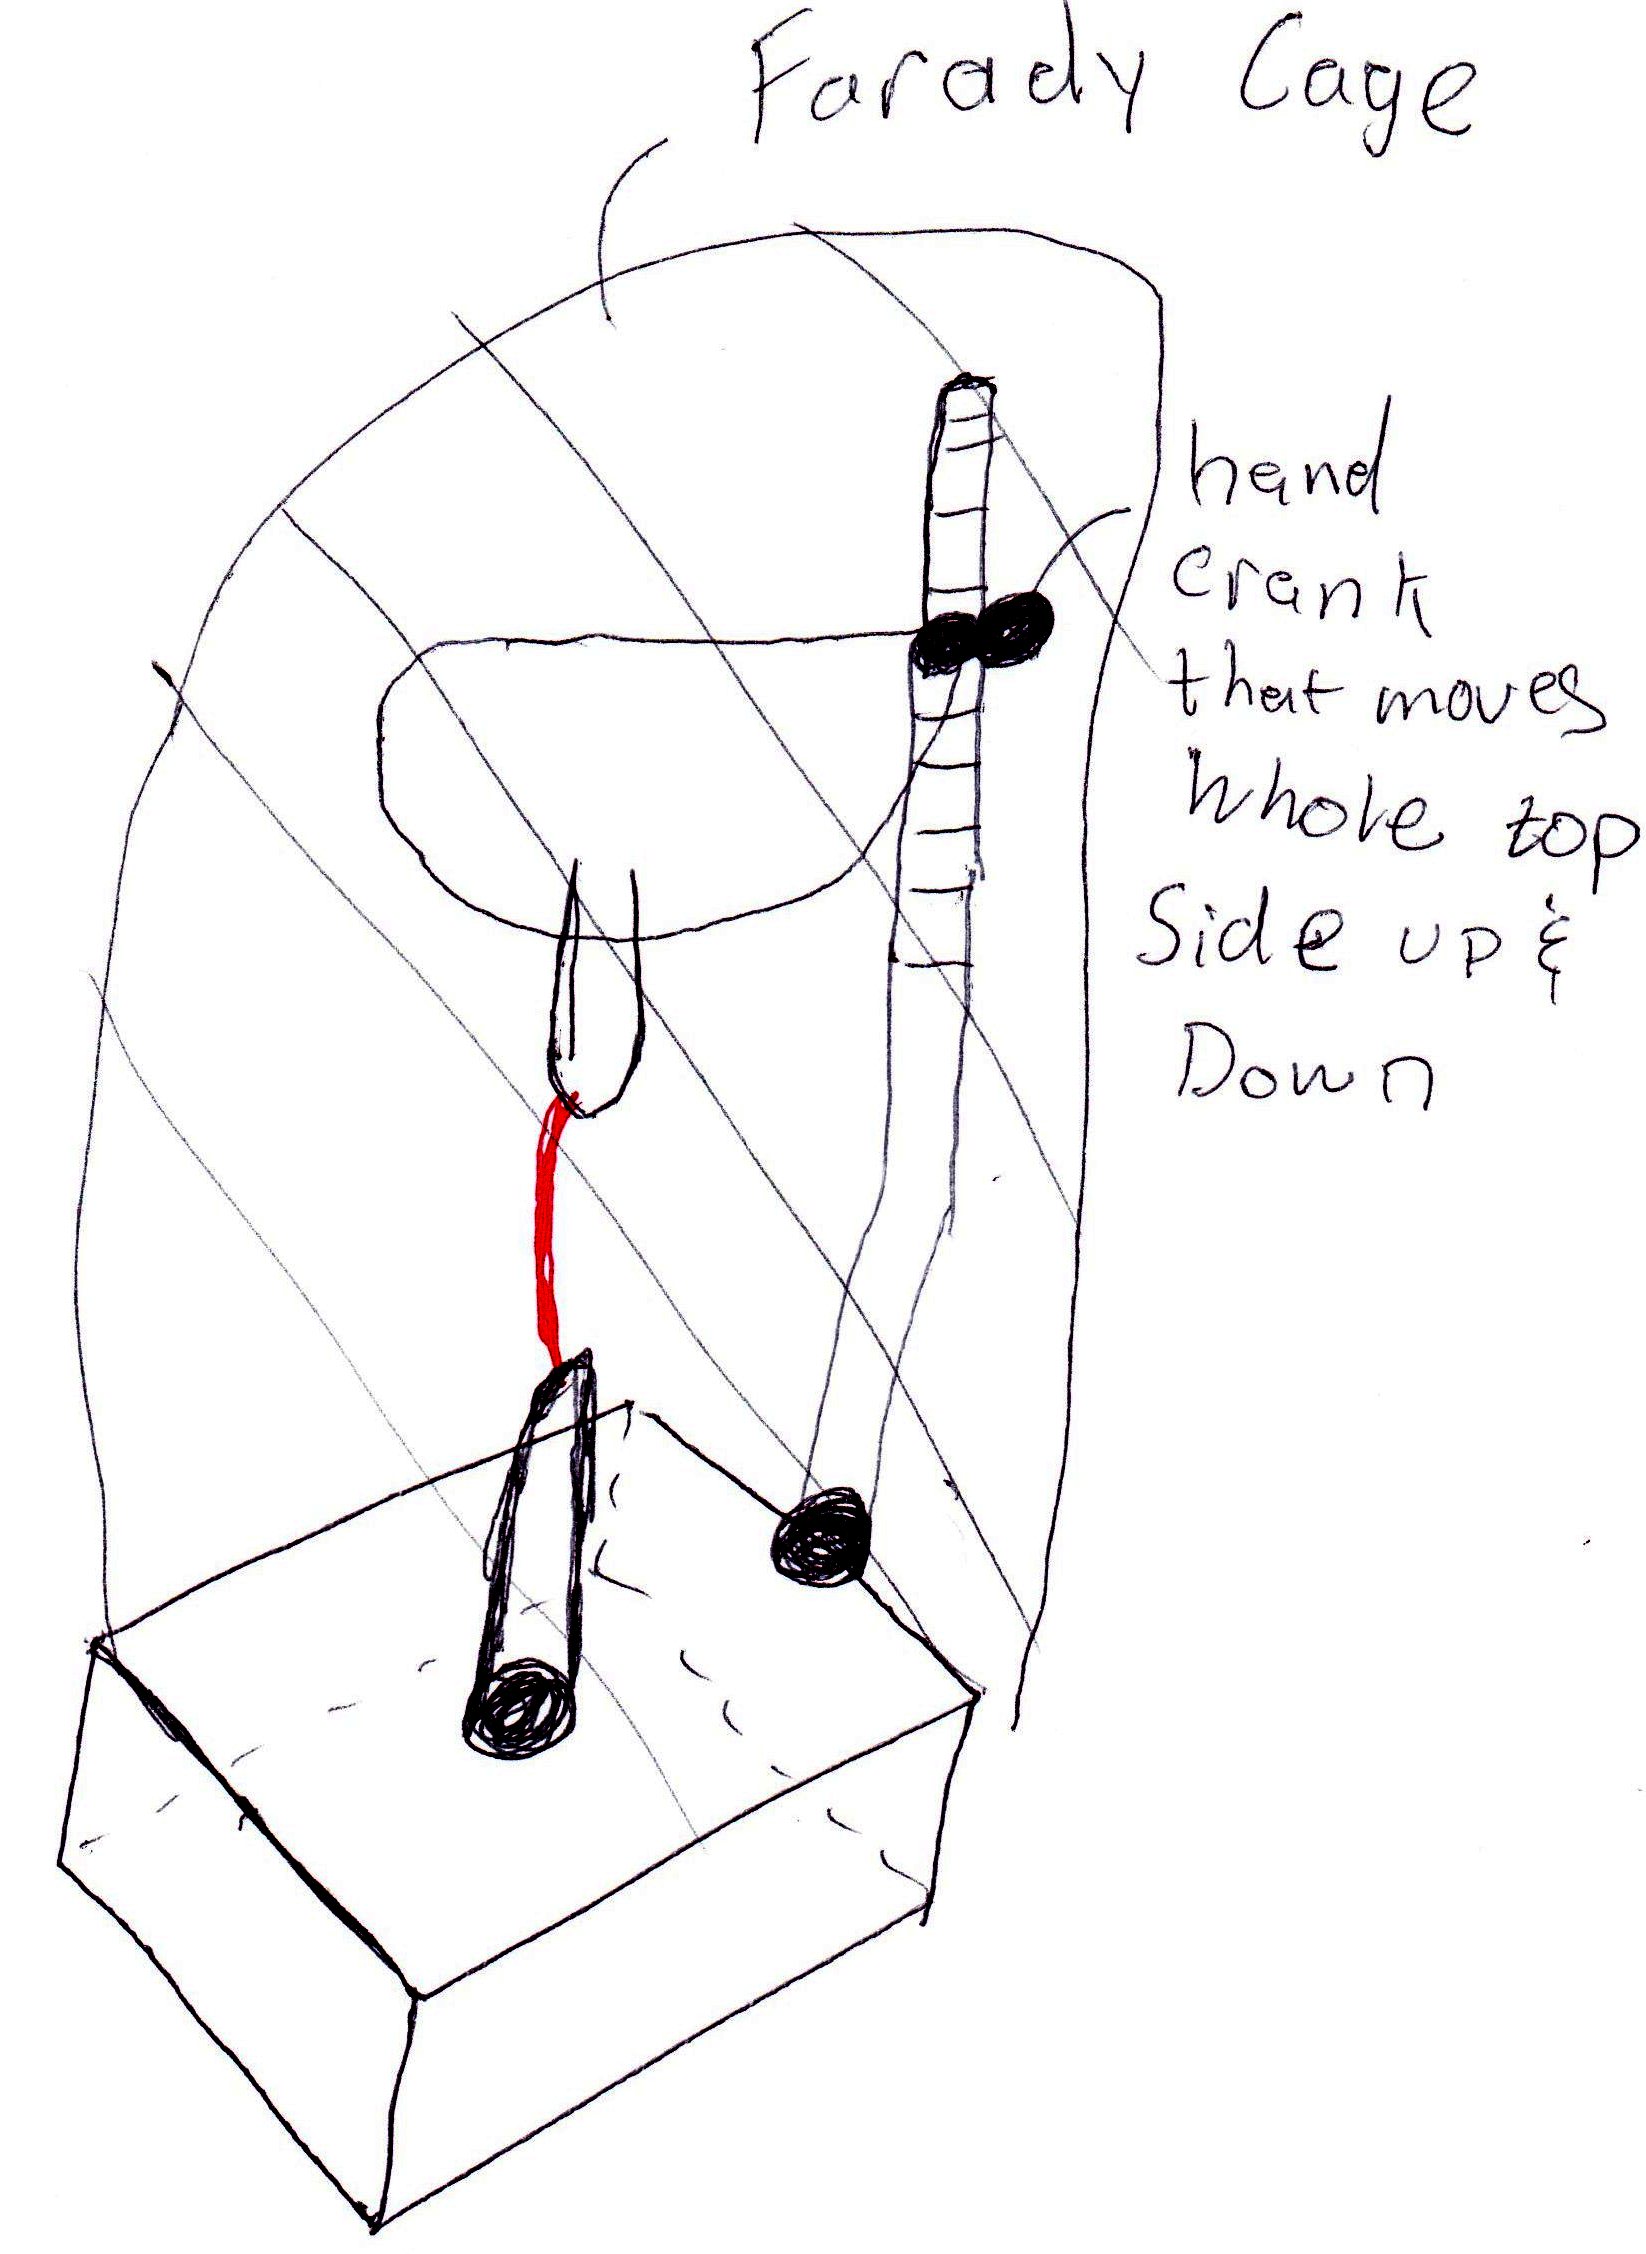 Farady Cage
hand
crank
that moves
whole top
Side up &
Down